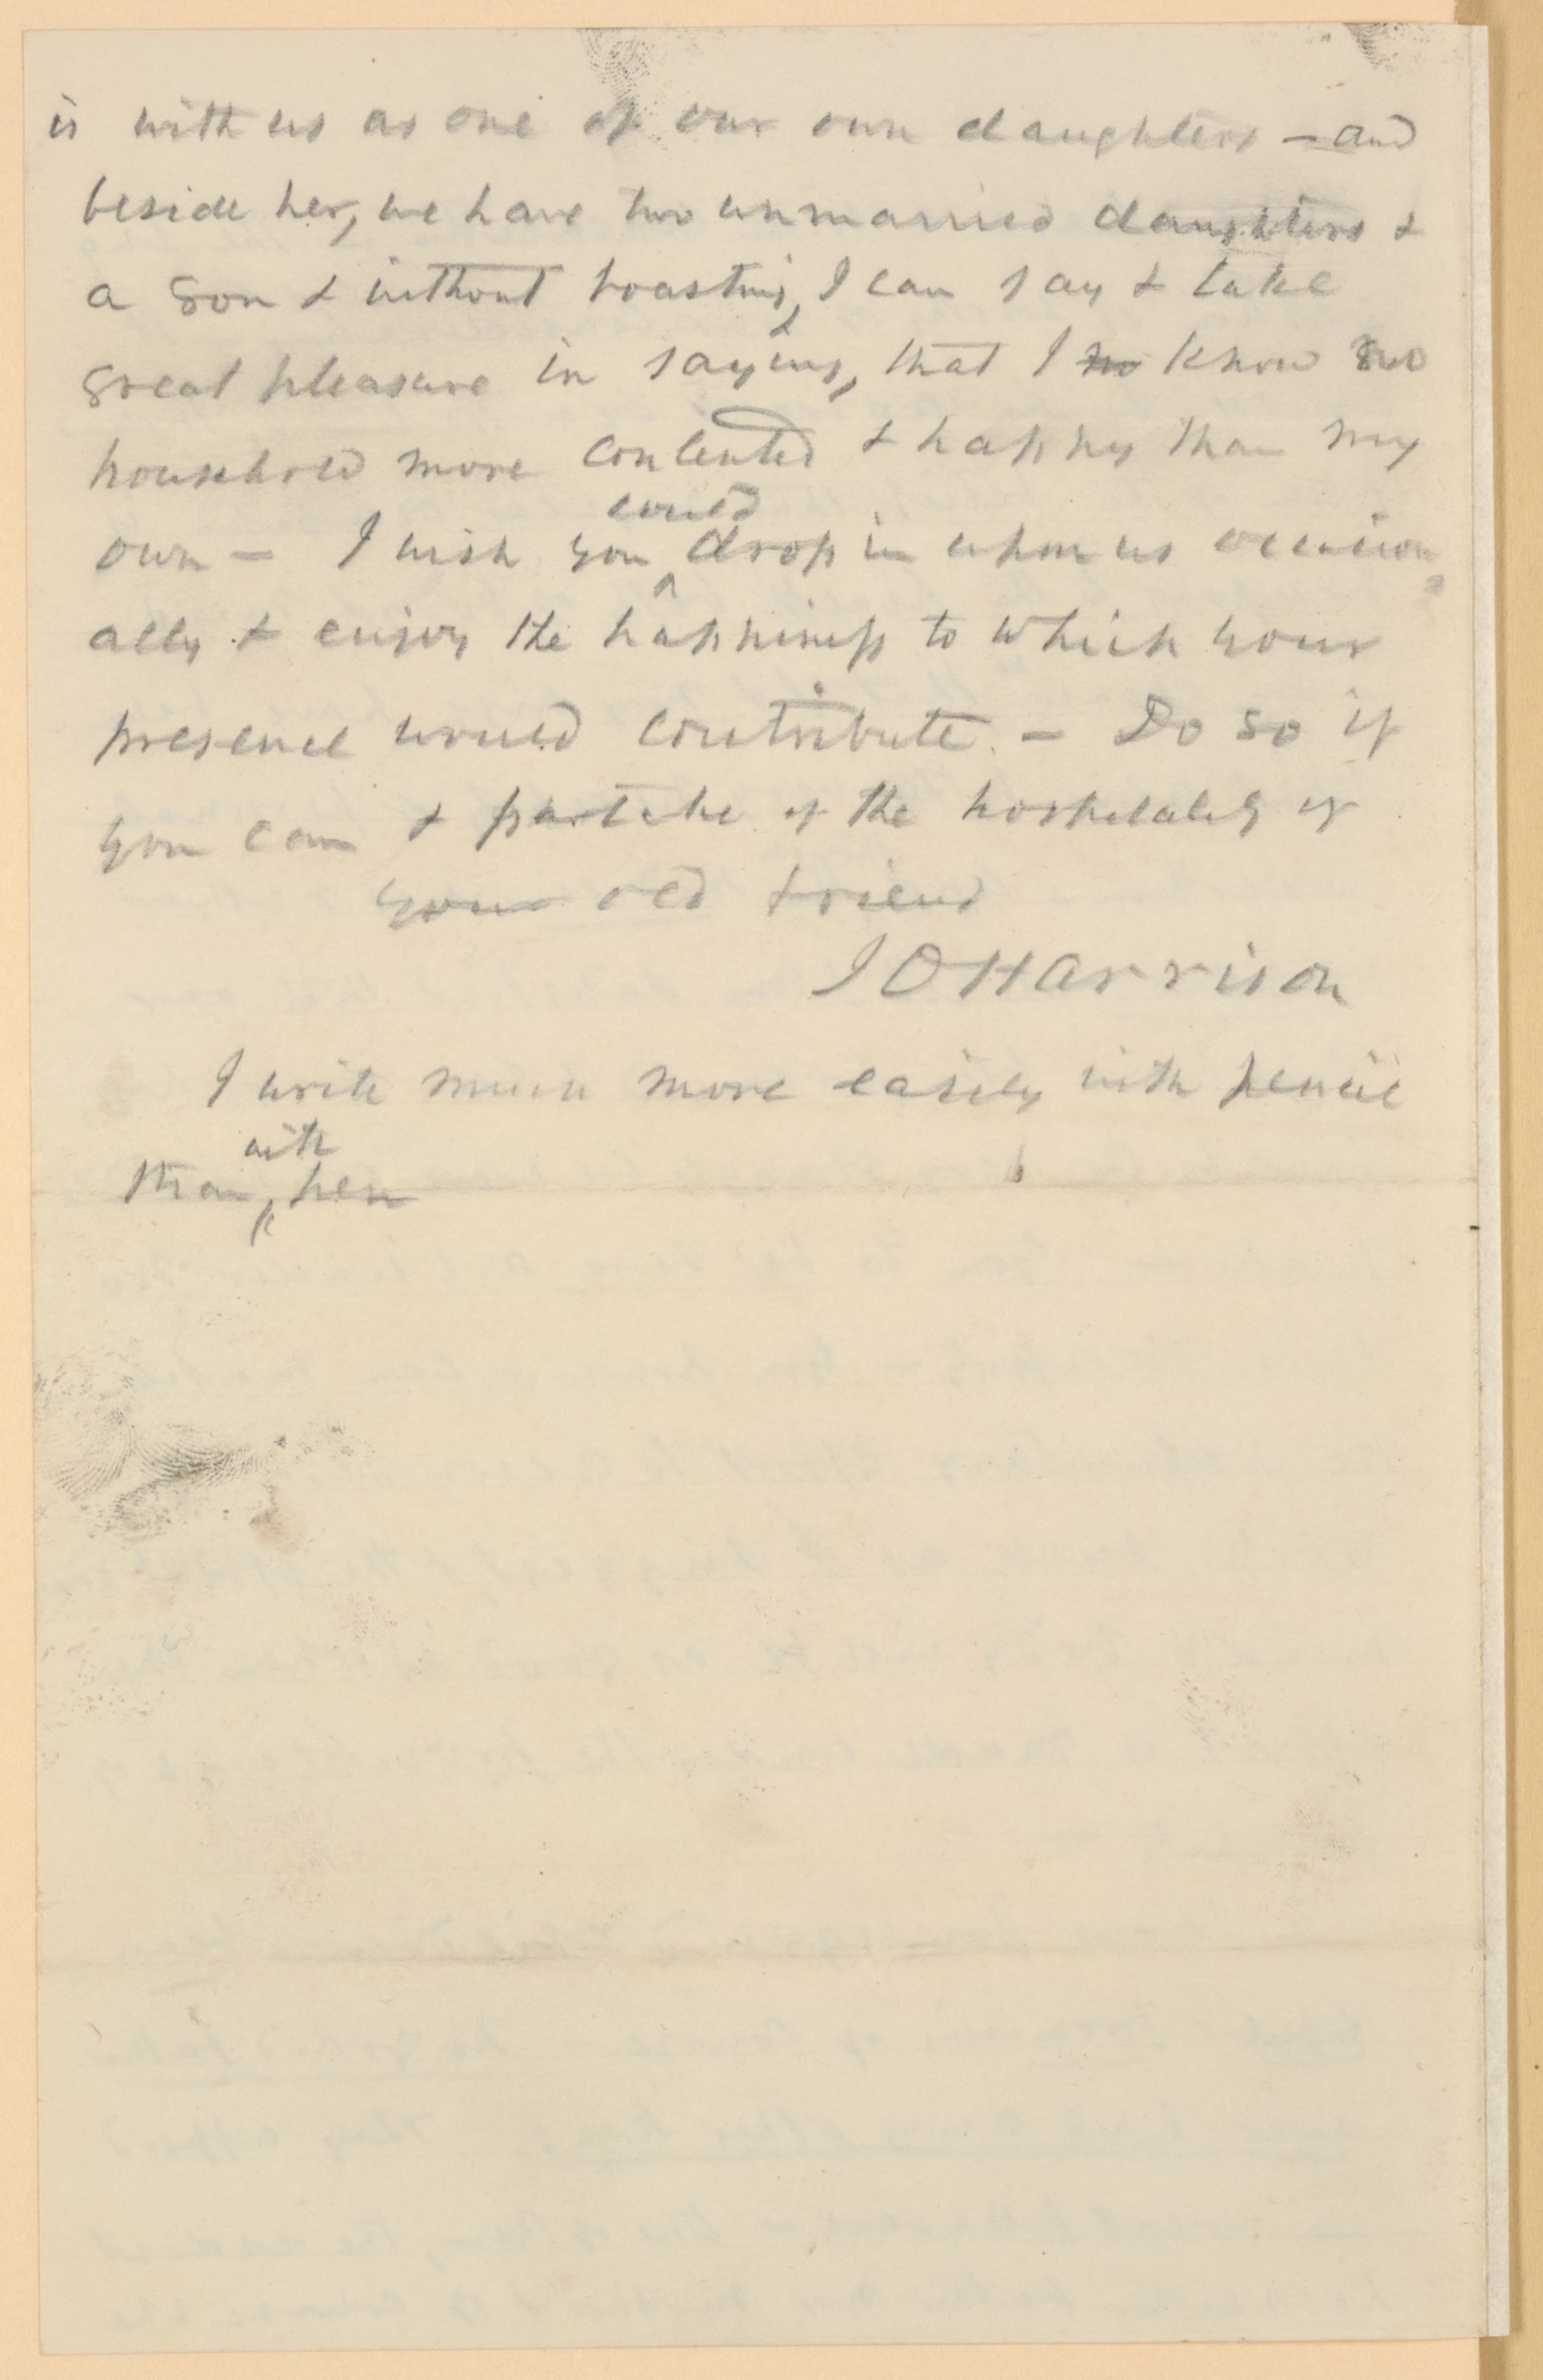 is with us as one of our own daughters – and
beside her, we have two unmarried daughters &
a son & without boasting, I can say & take
great pleasure in saying, that I no know no
household more contented & happy than my
own – I wish you could drop in upon us occasion
ally & enjoy the happiness to which your
presence would contribute – Do so if
you can & partake of the hospitality of
your old friend
J O Harrison
I write much more easily with pencil
than with pen